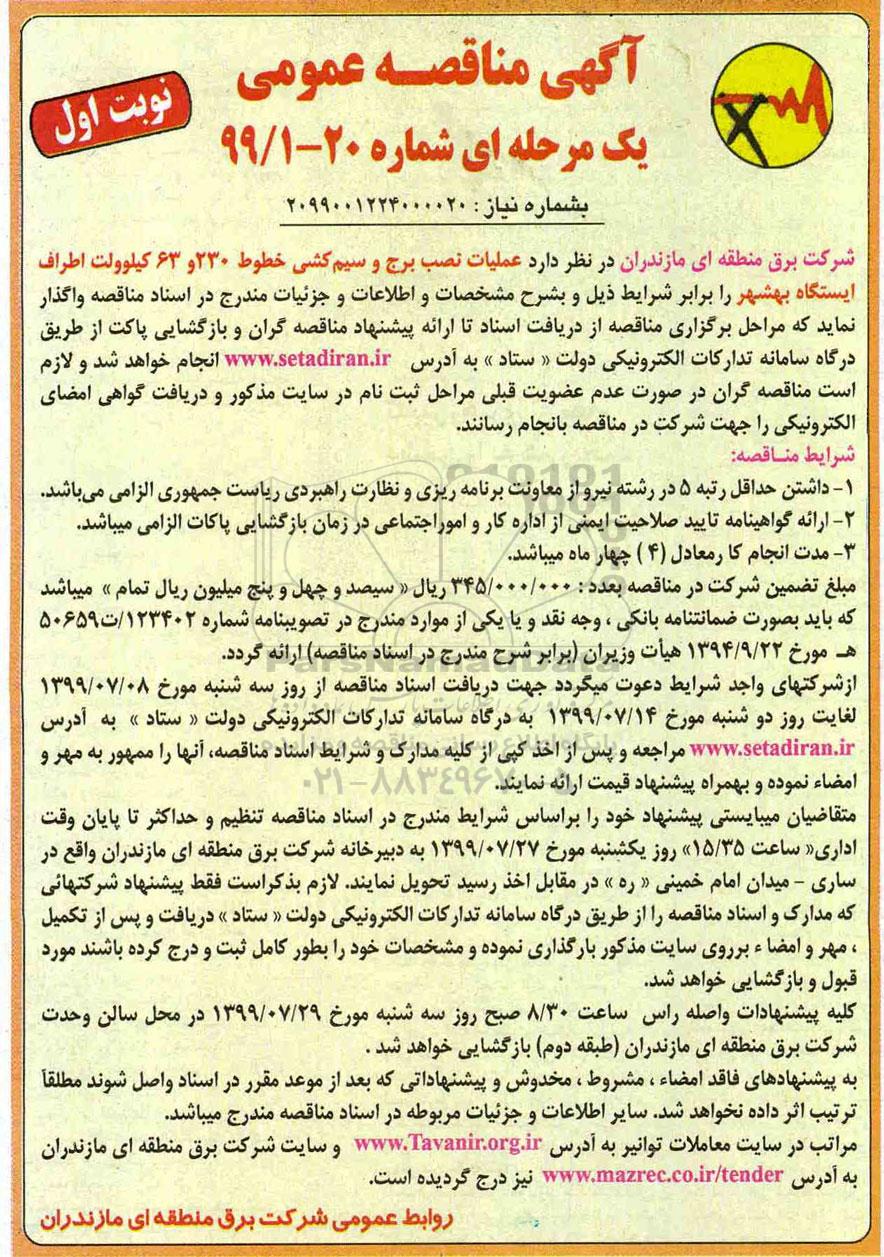 آگهی مناقصه عمومی
نوبت اول
یک مرحله ای شماره ۲۰-۹۹/۱
بشماره نیاز : ۲۰۹۹۰۰۱۲۲۴۰۰۰۰۲۰
شرکت برق منطقه ای مازندران در نظر دارد عملیات نصب برج و سیم‌کشی خطوط ۲۳۰و ۶۳ کیلوولت اطراف
ایستگاه بهشهر را برابر شرایط ذیل و بشرح مشخصات و اطلاعات و جزئیات مندرج در اسناد مناقصه واگذار
نماید که مراحل برگزاری مناقصه از دریافت اسناد تا ارائه پیشنهاد مناقصه گران و بازگشایی پاکت از طریق
درگاه سامانه تدارکات الکترونیکی دولت « ستاد » به آدرس www.setadiran.ir انجام خواهد شد و لازم
است مناقصه گران در صورت عدم عضویت قبلی مراحل ثبت نام در سایت مذکور و دریافت گواهی امضای
الکترونیکی را جهت شرکت در مناقصه بانجام رسانند.
شرایط مناقصه:
۱- داشتن حداقل رتبه ۵ در رشته نیرو از معاونت برنامه ریزی و نظارت راهبردی ریاست جمهوری الزامی می‌باشد.
۲- ارائه گواهینامه تایید صلاحیت ایمنی از اداره کار و اموراجتماعی در زمان بازگشایی پاکات الزامی میباشد.
۳- مدت انجام کا رمعادل (۴ ) چهار ماه میباشد.
مبلغ تضمین شرکت در مناقصه بعدد : ۳۴۵/۰۰۰/۰۰۰ ریال « سیصد و چهل و پنج میلیون ریال تمام » میباشد
که باید بصورت ضمانتنامه بانکی ، وجه نقد و یا یکی از موارد مندرج در تصویبنامه شماره ۱۲۳۴۰۲/ت۵۰۶۵۹
هـ مورخ ۱۳۹۴/۹/۲۲ هیأت وزیران (برابر شرح مندرج در اسناد مناقصه) ارائه گردد.
ازشرکتهای واجد شرایط دعوت میگردد جهت دریافت اسناد مناقصه از روز سه شنبه مورخ ۱۳۹۹/۰۷/۰۸
لغایت روز دو شنبه مورخ ۱۳۹۹/۰۷/۱۴ به درگاه سامانه تدارکات الکترونیکی دولت « ستاد » به آدرس
www.setadiran.ir مراجعه و پس از اخذ کپی از کلیه مدارک و شرایط اسناد مناقصه، آنها را ممهور به مهر و
امضاء نموده و بهمراه پیشنهاد قیمت ارائه نمایند.
۰۲۱-۸۸۳۴۹۶۷
متقاضیان میبایستی پیشنهاد خود را براساس شرایط مندرج در اسناد مناقصه تنظیم و حداکثر تا پایان وقت
اداری« ساعت ۱۵/۳۵» روز یکشنبه مورخ ۱۳۹۹/۰۷/۲۷ به دبیرخانه شرکت برق منطقه ای مازندران واقع در
ساری - میدان امام خمینی « ره » در مقابل اخذ رسید تحویل نمایند. لازم بذکراست فقط پیشنهاد شرکتهائی
که مدارک و اسناد مناقصه را از طریق درگاه سامانه تدارکات الکترونیکی دولت « ستاد » دریافت و پس از تکمیل
، مهر و امضا ء برروی سایت مذکور بارگذاری نموده و مشخصات خود را بطور کامل ثبت و درج کرده باشند مورد
قبول و بازگشایی خواهد شد.
کلیه پیشنهادات واصله راس ساعت ۸/۳۰ صبح روز سه شنبه مورخ ۱۳۹۹/۰۷/۲۹ در محل سالن وحدت
شرکت برق منطقه ای مازندران (طبقه دوم) بازگشایی خواهد شد .
به پیشنهادهای فاقد امضاء ، مشروط ، مخدوش و پیشنهاداتی که بعد از موعد مقرر در اسناد واصل شوند مطلقاً
ترتیب اثر داده نخواهد شد. سایر اطلاعات و جزئیات مربوطه در اسناد مناقصه مندرج میباشد.
مراتب در سایت معاملات توانیر به آدرس www.Tavanir.org.ir و سایت شرکت برق منطقه ای مازندران
به آدرس www.mazrec.co.ir/tender نیز درج گردیده است.
روابط عمومی شرکت برق منطقه ای مازندران